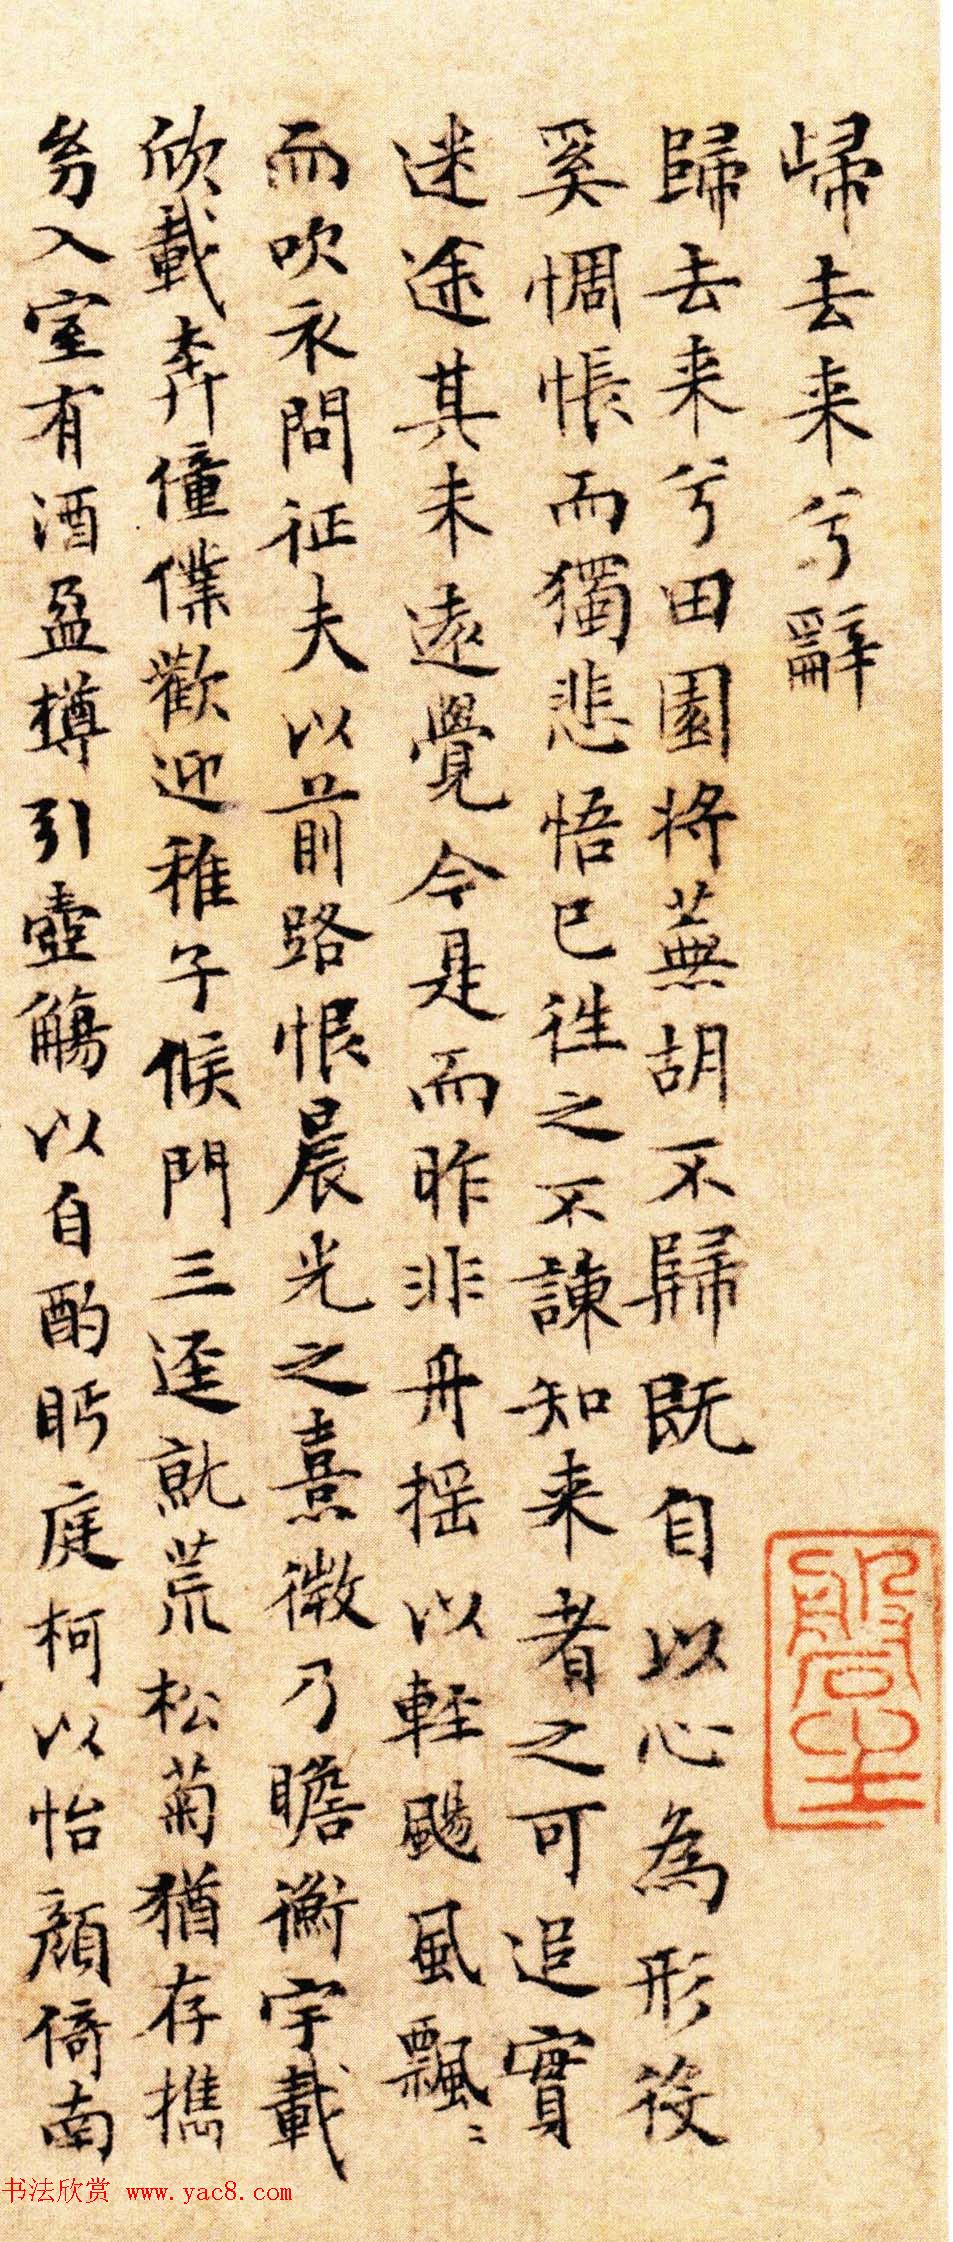 歸去来兮辭
歸去来兮田園将蕪胡不歸既自以心為形役
奚惆悵而獨悲悟已往之不諫知来者之可追實
迷途其未遠覺今是而昨非舟揺以軽颺風飄〻
而吹衣問征夫以前路恨晨光之熹微乃瞻衡宇載
欣載奔僮僕歡迎稚子候門三逕就荒松菊猶存携
㓜入室有酒盈樽引壺觴以自酌眄庭柯以怡顔倚南
书法欣赏 www.yac8.com